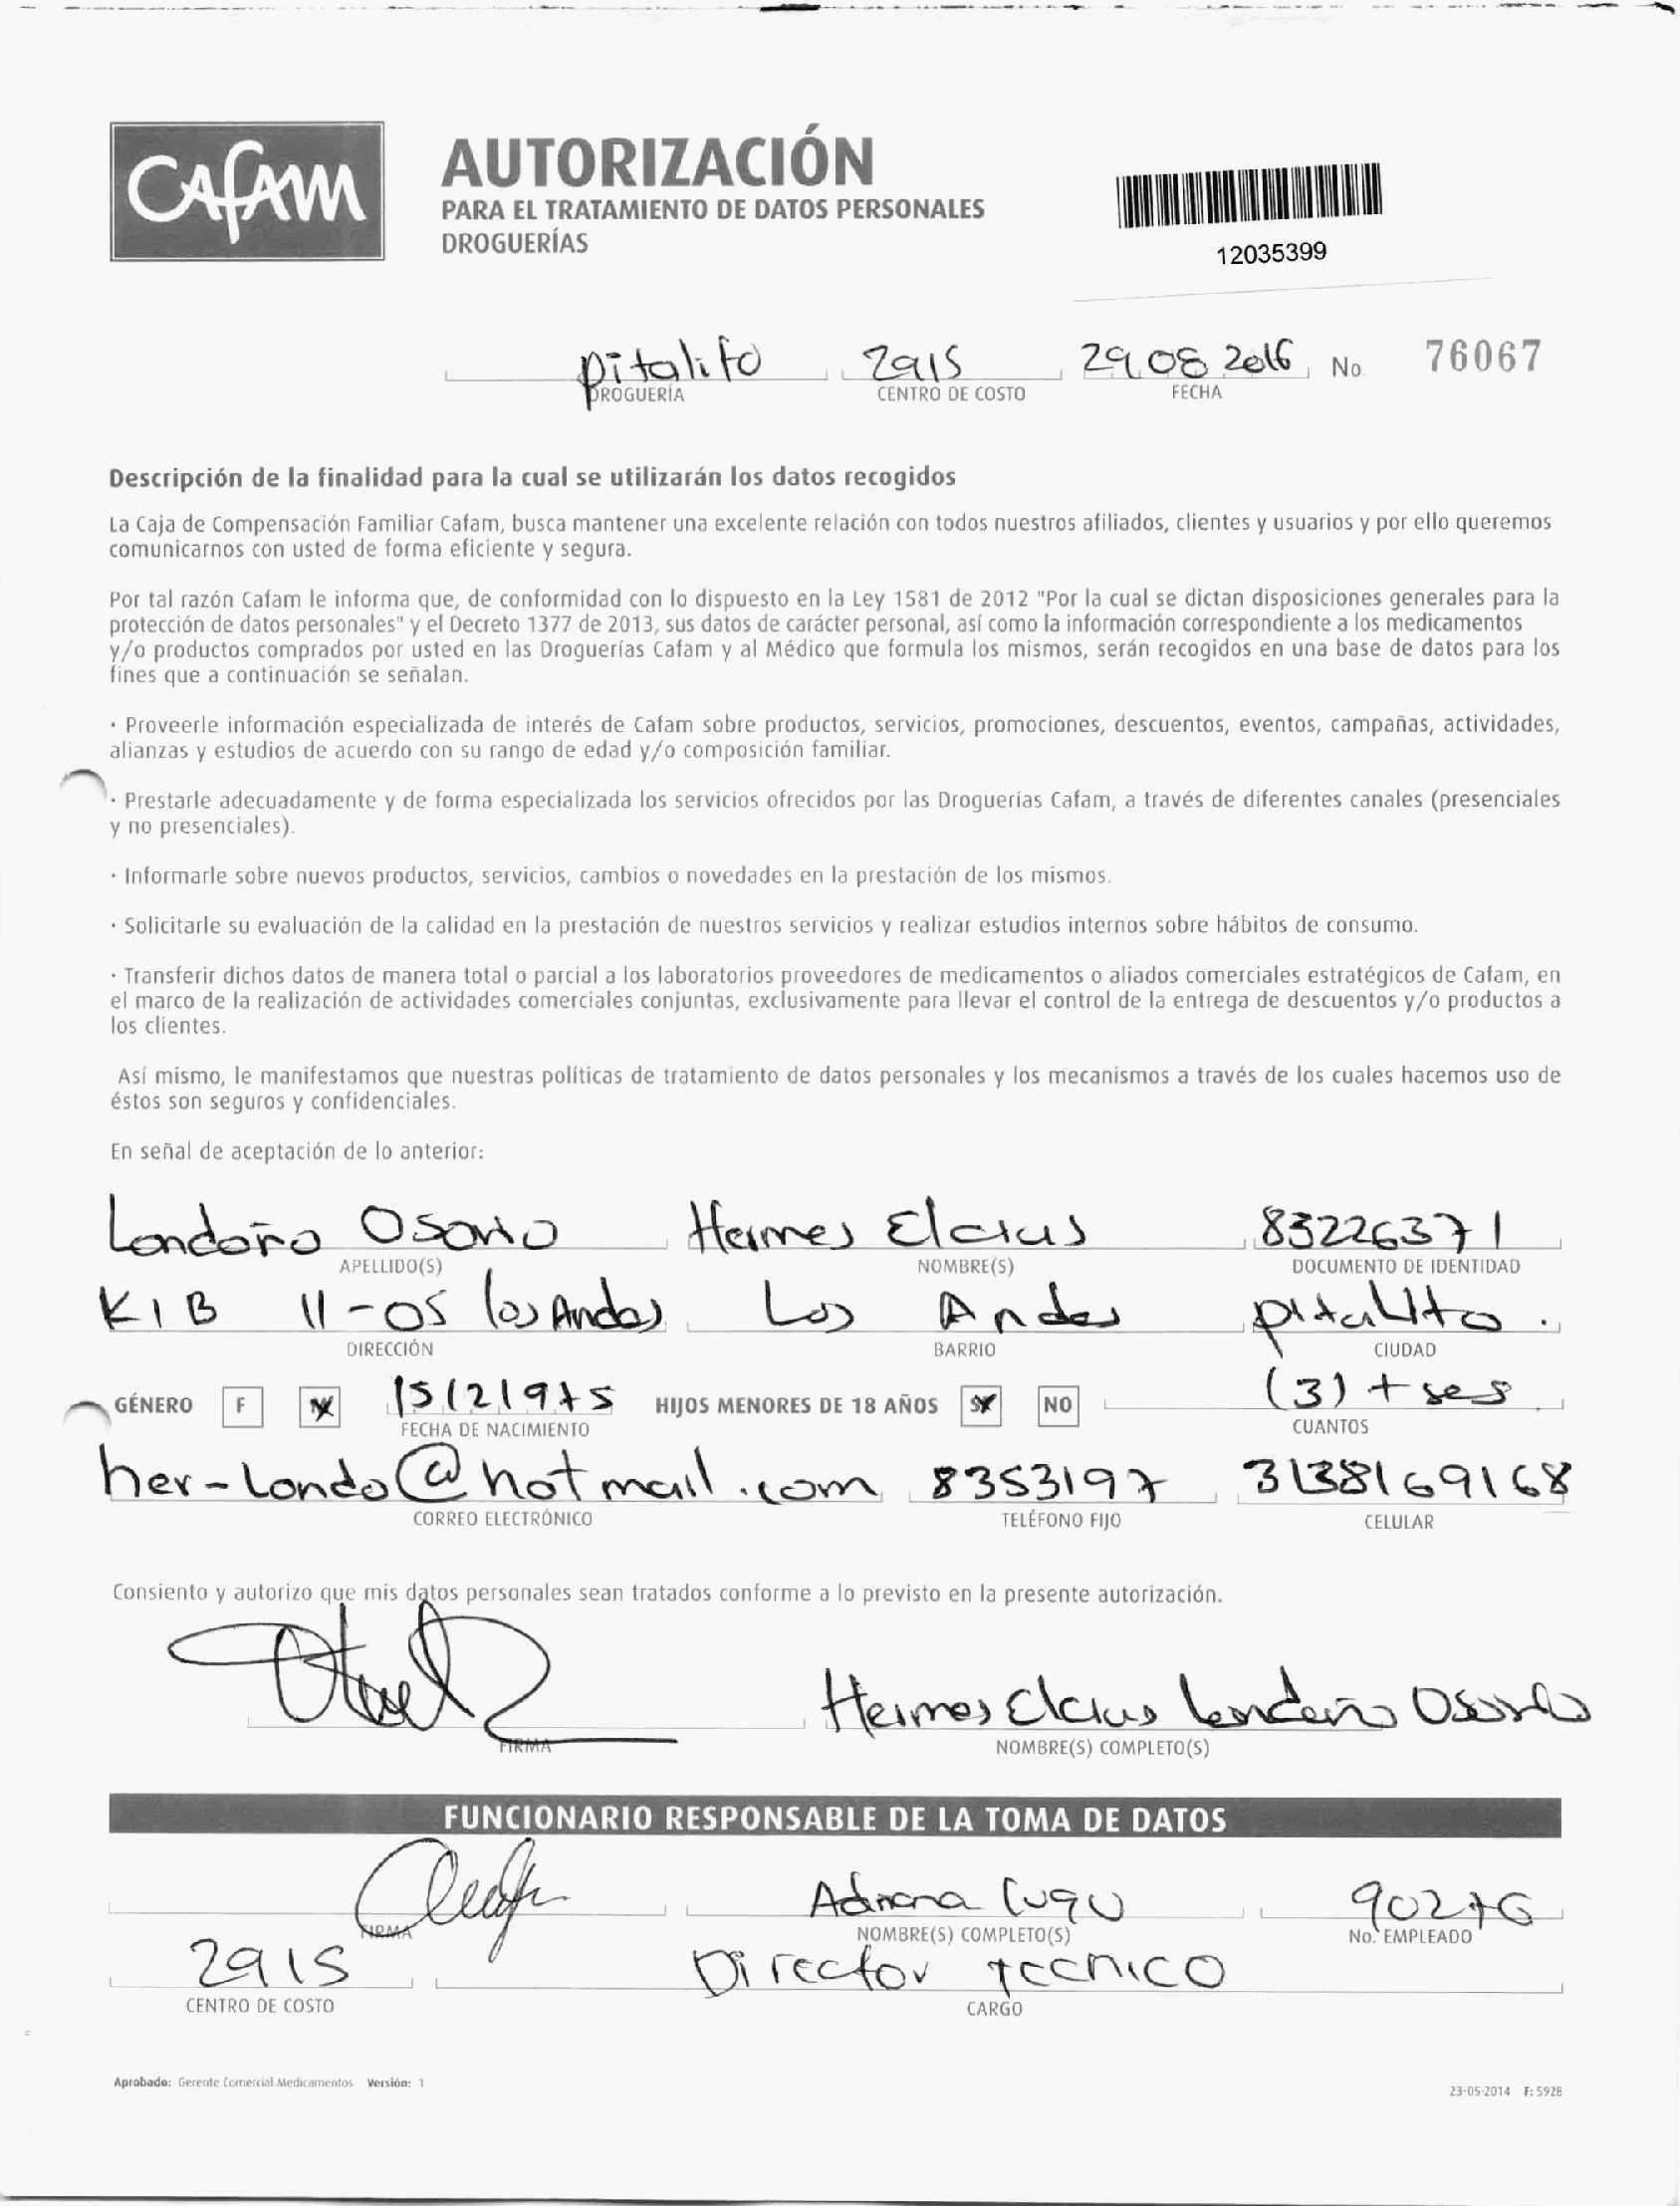 CAFAM
AUTORIZACIÓN
PARA EL TRATAMIENTO DE DATOS PERSONALES
DROGUERÍAS
12035399
pitalito 2915 29 08 2016 No. 76067
DROGUERÍA CENTRO DE COSTO FECHA
Descripción de la finalidad para la cual se utilizarán los datos recogidos
La Caja de Compensación Familiar Cafam, busca mantener una excelente relación con todos nuestros afiliados, clientes y usuarios y por ello queremos
comunicarnos con usted de forma eficiente y segura.
Por tal razón Cafam le informa que, de conformidad con lo dispuesto en la Ley 1581 de 2012 "Por la cual se dictan disposiciones generales para la
protección de datos personales" y el Decreto 1377 de 2013, sus datos de carácter personal, así como la información correspondiente a los medicamentos
y/o productos comprados por usted en las Droguerías Cafam y al Médico que formula los mismos, serán recogidos en una base de datos para los
fines que a continuación se señalan.
· Proveerle información especializada de interés de Cafam sobre productos, servicios, promociones, descuentos, eventos, campañas, actividades,
alianzas y estudios de acuerdo con su rango de edad y/o composición familiar.
· Prestarle adecuadamente y de forma especializada los servicios ofrecidos por las Droguerías Cafam, a través de diferentes canales (presenciales
y no presenciales).
· Informarle sobre nuevos productos, servicios, cambios o novedades en la prestación de los mismos.
· Solicitarle su evaluación de la calidad en la prestación de nuestros servicios y realizar estudios internos sobre hábitos de consumo.
· Transferir dichos datos de manera total o parcial a los laboratorios proveedores de medicamentos o aliados comerciales estratégicos de Cafam, en
el marco de la realización de actividades comerciales conjuntas, exclusivamente para llevar el control de la entrega de descuentos y/o productos a
los clientes.
Así mismo, le manifestamos que nuestras políticas de tratamiento de datos personales y los mecanismos a través de los cuales hacemos uso de
éstos son seguros y confidenciales.
En señal de aceptación de lo anterior:
Londoño Osorio Hermes Elcius 83226371
APELLIDO(S) NOMBRE(S) DOCUMENTO DE IDENTIDAD
K 1 B 11-05 los Andes Los Andes pitalito.
DIRECCIÓN BARRIO CIUDAD
GÉNERO F M 15121975 HIJOS MENORES DE 18 AÑOS SI NO (3) tres
FECHA DE NACIMIENTO CUANTOS
her-londo@hotmail.com 8353197 3138169168
CORREO ELECTRÓNICO TELÉFONO FIJO CELULAR
Consiento y autorizo que mis datos personales sean tratados conforme a lo previsto en la presente autorización.
Hermes Elcius Londoño Osorio
FIRMA NOMBRE(S) COMPLETO(S)
FUNCIONARIO RESPONSABLE DE LA TOMA DE DATOS
Adriana Lugo 90276
FIRMA NOMBRE(S) COMPLETO(S) No. EMPLEADO
2915 Director tecnico
CENTRO DE COSTO CARGO
Aprobado: Gerente Comercial Medicamentos Versión: 1
23-05-2014 F: 5928